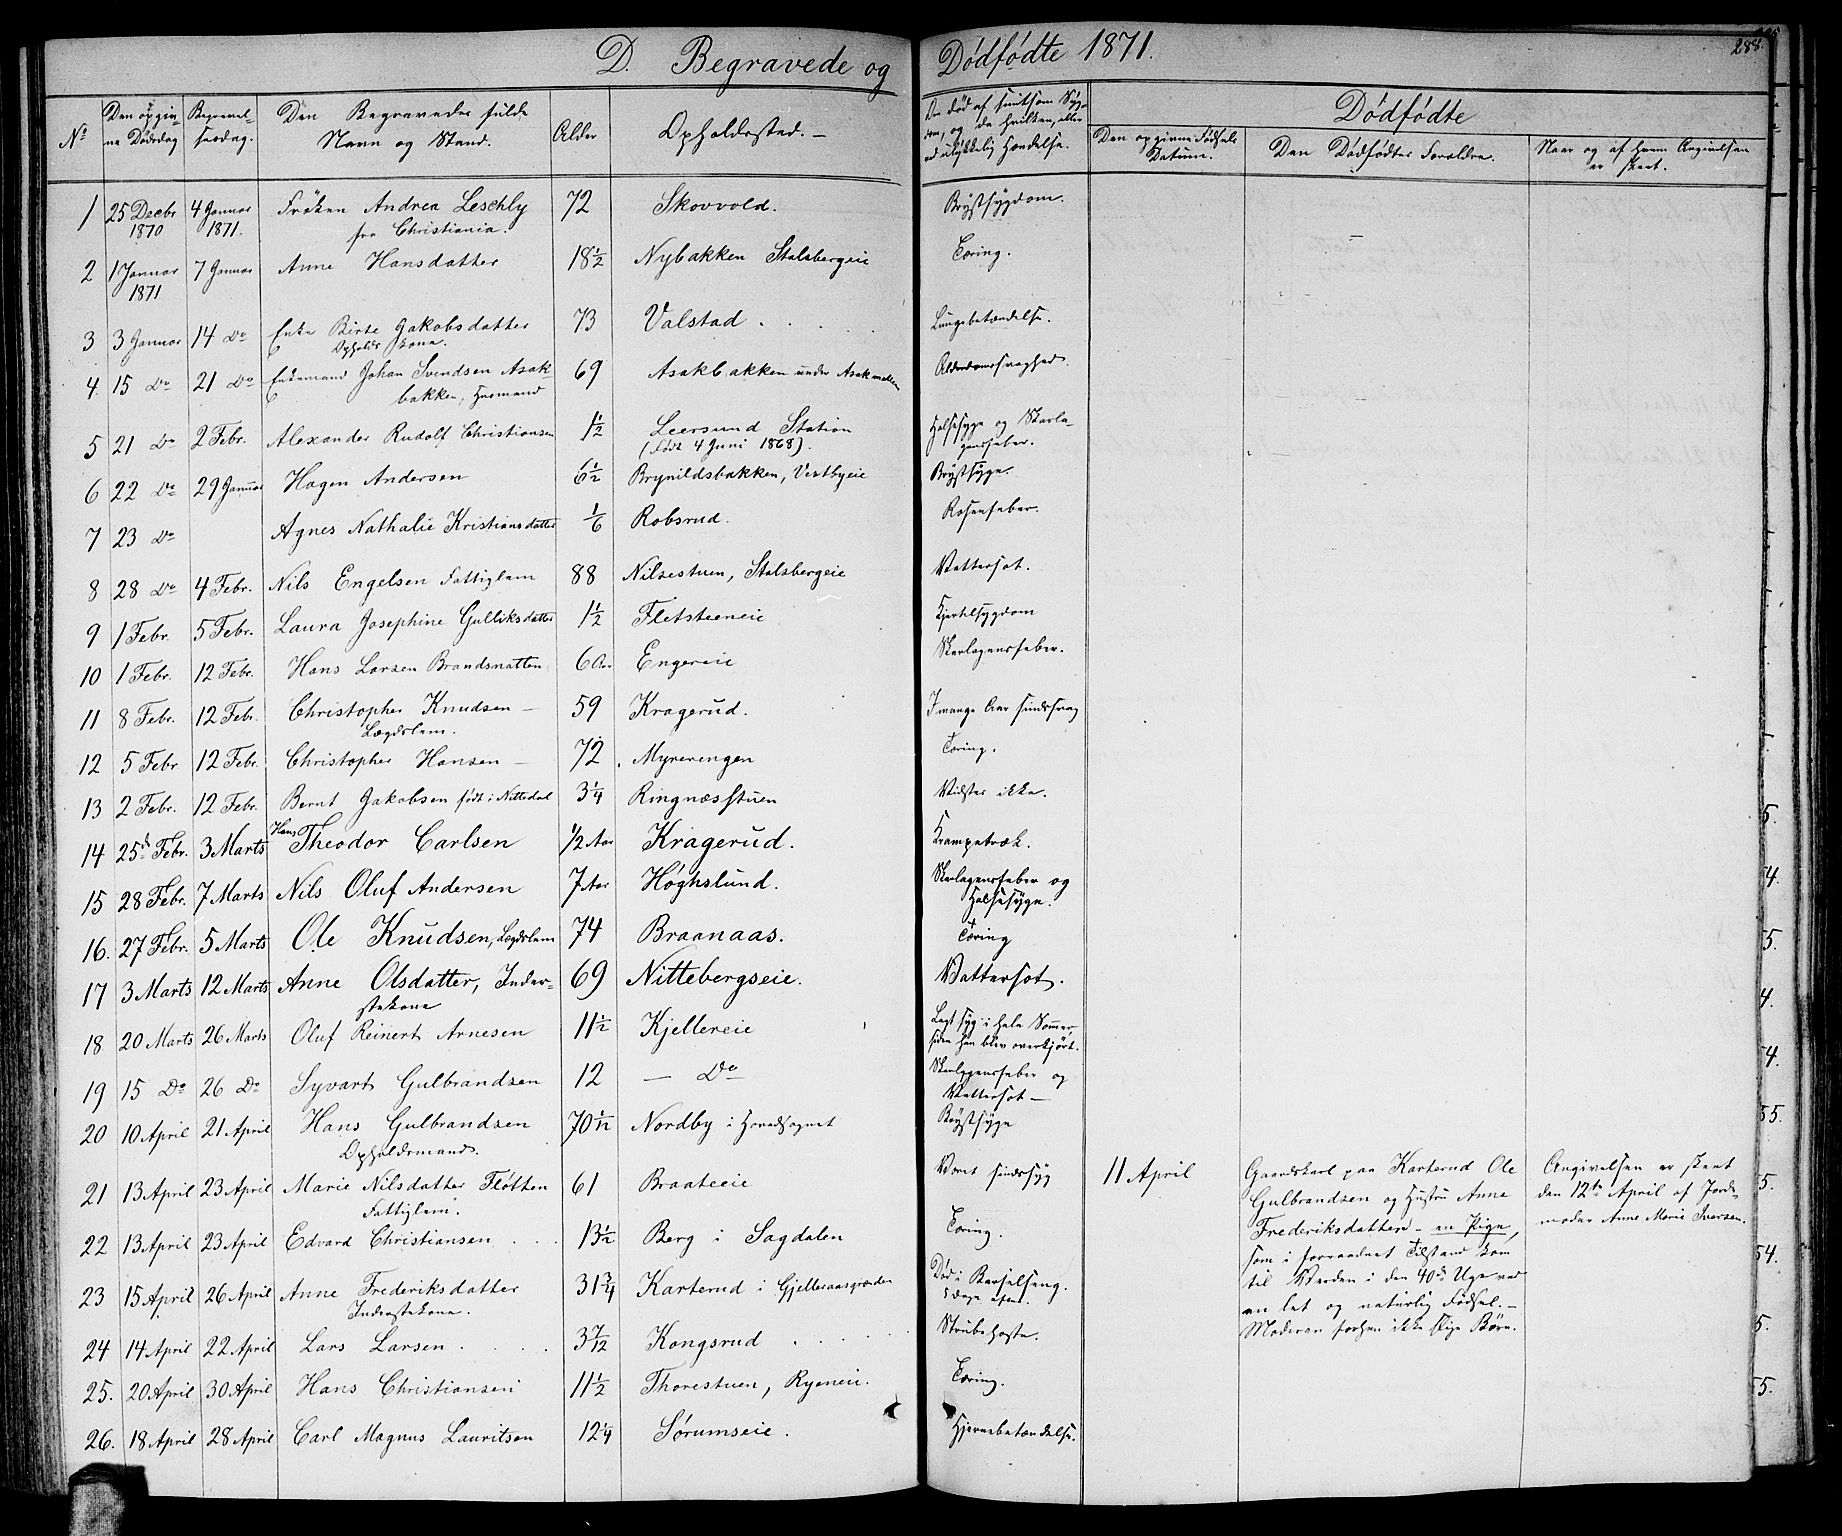 D. Begravede og Dødfødte 1871.
288.
No | Den opgivne Dødsdag | Begravelsesdag. | Den Begravedes fulde Navn og Stand. | Alder | Opholdssted. | Er død af smitsom Sygdom, og da hvilken, eller ved ulykkelig Hændelse. | Dødfødte
Den opgivne Fødsels Datum. | Den Dødfødtes Forældre. | Naar og af hvem Angivelsen er skeet.
1 | 25 Decbr 1870 | 4 Januar 1871. | Frøken Andrea Leschly fra Christiania. | 72 | Skovvold. | Brystsygdom.
2 | 1 Januar 1871 | 7 Januar | Anne Hansdatter | 18 1/2 | Nybakken Stalsbergeie | Tæring.
3 | 3 Januar | 14 Do | Enke Birte Jakobsdatter Opholdskona. | 73 | Valstad | Lungebetændelse.
4. | 15 Do | 21 Do | Enkemand Johan Svendsen Asakbakken, Huusmand | 69 | Asakbakken under Asak mellem | Alderdomssvaghed.
5 | 21 Do | 2 Febr. | Alexander Rudolf Christiansen | 1/2 | Leersund Station (født 4 Juni 1868). | Halssyge og Skarlagensfeber.
6 | 22 Do | 29 Januar | Hagen Andersen | 6 1/2 | Brynildsbakken, Vestbyeie | Brystsyge.
7 | 23 Do | Agnes Nathalie Kristiansdatter | 1/6 | Robsrud. | Rosenfeber.
8 | 28 Do | 4 Febr. | Nils Engelsen Fattiglem | 88 | Nilsestuen, Stalsbergeie | Vattersot.
9 | 1 Febr. | 5 Febr. | Laura Josephine Gulliksdatter | 1 1/2 | Fletsteeneie | Kjertelsygdom
10 | 1 Febr. | 12 Febr. | Hans Larsen Brandsnatten | 6 Aar | Engereie | Skarlagensfeber.
11 | 8 Febr. | 12 Febr. | Christopher Knudsen – Lægdslem. | 59 | Kragerud. | I mange Aar sindssvag
12 | 5 Febr. | 12 Febr. | Christopher Hansen – | 72 | Myrerengen | Tæring.
13 | 2 Febr. | 12 Febr. | Bernt Jakobsen født i Nittedal | 3 1/4 | Ringnæsstuen | Vidstes ikke.
14 | 25de Febr. | 3 Marts | Hans Theodor Carlsen | 1/2 Aar | Kragerud. | Krampetræk.
15 | 28 Febr. | 7 Marts | Nils Oluf Andersen | 7 Aar | Høghslund. | Skarlagensfeber og Halssyge.
16. | 27 Febr. | 5 Marts | Ole Knudsen, Lægdslem | 74 | Braanaas. | Tæring
17 | 3 Marts | 12 Marts | Anne Olsdatter, Inderstekone | 69 | Nittebergseie. | Vattersot.
18 | 20 Marts | 26 Marts | Oluf Reinert Arnesen | 11 1/2 | Kjellereie | Lagt syg i hele Sommer, siden han blev overkjørt.
19 | 15 Do | 26 Do | Syvart Gulbrandsen | 12 | – Do | Skarlagensfeber og Vattersot –
20 | 10 April | 21 April | Hans Gulbrandsen Opholdsmand. | 70 1/12 | Nordby i Hovedsognet | Brystsyge
21 | 13 April | 23 April | Marie Nilsdatter Fløtten Fattiglem. | 61 | Braateeie | Været sindssyg | 11 April | Gaardskarl paa Karterud Ole Gulbrandsen og Hustru Anne Frederiksdatter – en Pige, som i forraadnet Tilstand kom til Verden i den 40de Uge ved en let og naturlig Fødsel. – Moderen forhen ikke slige Børn. | Angivelsen er skeet den 12te April af Jordemoder Anne Marie Iversen.
22 | 13 April | 23 April | Edvard Christiansen | 13 1/2 | Berg i Sagdalen | Tæring.
23 | 15 April | 26 April | Anne Frederiksdatter Inderstekone. | 31 3/4 | Karterud i Gjelleraasgrænden | Død i Barselseng. 5 Dage efter.
24 | 14 April | 22 April | Lars Larsen | 3 7/12 | Kongsrud | Strubehoste.
25. | 20 April | 30 April | Hans Christiansen | 11 1/2 | Thorestuen, Ryeneie. | Tæring.
26. | 18 April | 28 April | Carl Magnus Lauritsen | 12 1/4 | Sørumseie. | Hjernebetændelse.